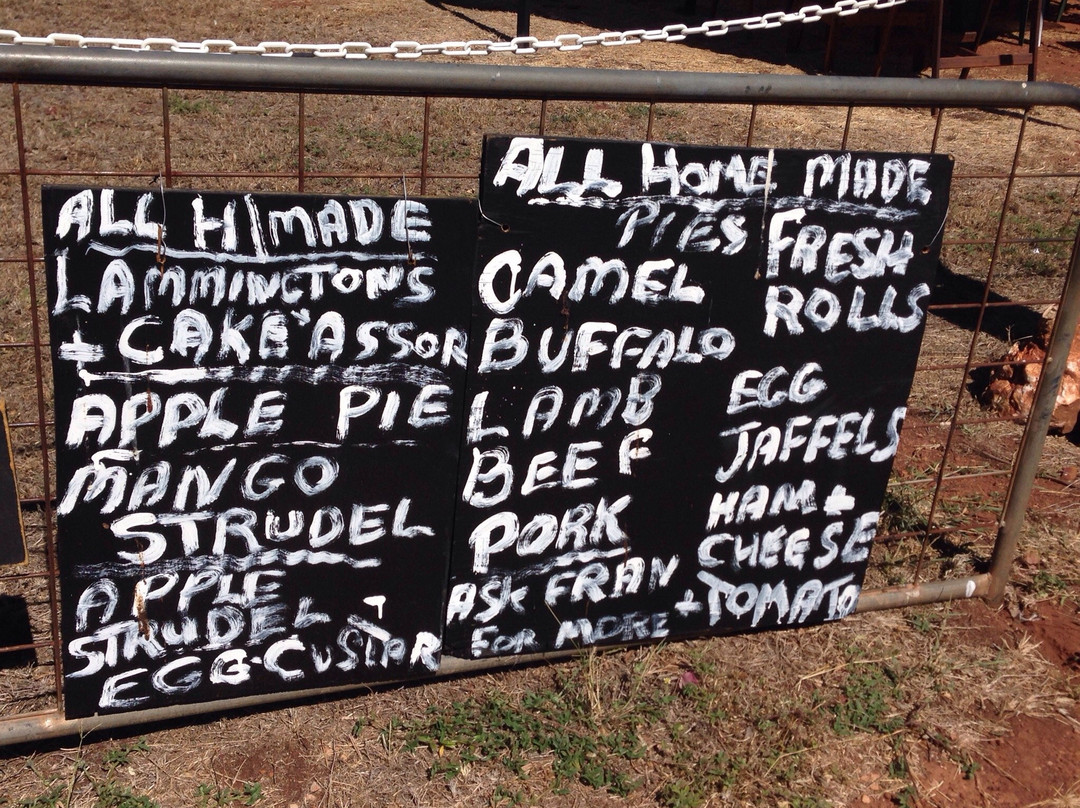 ALL H/MADE
LAMMINGTONS
+ CAKE ASSOR
APPLE PIE
MANGO
STRUDEL
APPLE
STRUDEL
EGG-CUSTAR
ALL HOME MADE
PIES
CAMEL
BUFFALO
LAMB
BEEF
PORK
ASK FRAN
FOR MORE
FRESH
ROLLS
EGG
JAFFELS
HAM +
CHEESE
+ TOMATO